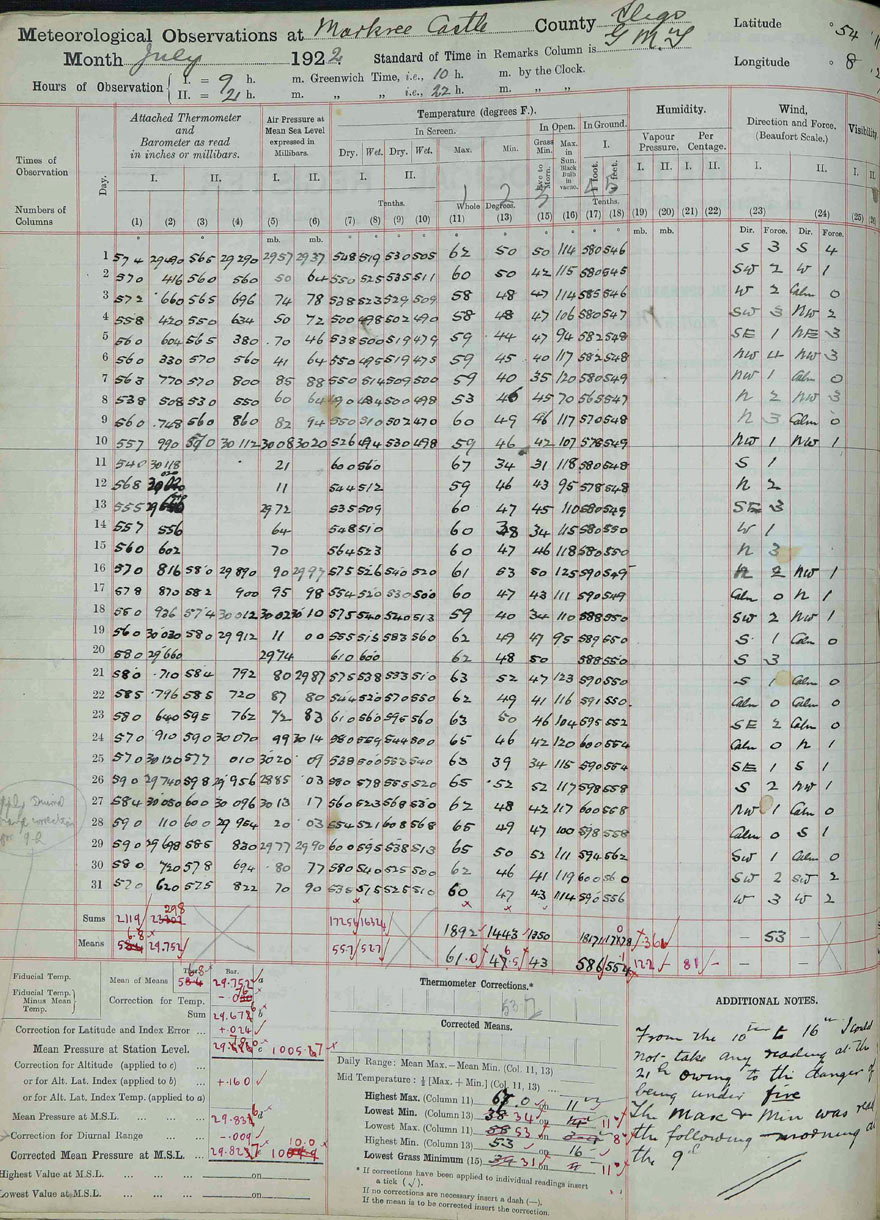 Meteorological Observations at Markree Castle County Sligo
Month July 1922 Standard of Time in Remarks Column is G M T
Latitude ° 54
Longitude ° 8
Hours of Observation { I. = 9 h. m. Greenwich Time, i.e., 10 h. m. by the Clock.
II. = 21 h. m. „ „ i.e., 22 h. m. „ „
Times of Observation
Numbers of Columns
Day.
Attached Thermometer and Barometer as read in inches or millibars.
Air Pressure at Mean Sea Level expressed in Millibars.
Temperature (degrees F.).
In Screen. In Open. In Ground.
Dry. Wet. Dry. Wet. Max. Min.
Humidity.
Vapour Pressure. Per Centage.
Wind, Direction and Force, (Beaufort Scale.)
Visibility.
I. II. I. II. I. II. I. II. I. II. I. II.
Tenths. Whole Degrees. Tenths.
(1) (2) (3) (4) (5) (6) (7) (8) (9) (10) (11) (13) (15) (16) (17) (18) (19) (20) (21) (22) (23) (24) (25) (26)
mb. mb. mb. Dir. Force. Dir. Force.
1 574 29490 565 29290 2957 2937 548 519 530 505 62 50 50 114 580 546 S 3 S 4
2 570 416 560 560 50 64 550 525 535 511 60 50 42 115 580 545 SW 2 W 1
3 572 660 565 696 74 78 538 523 529 509 58 48 47 114 585 546 W 2 Calm 0
4 558 420 550 634 50 72 500 498 502 490 58 48 47 106 580 547 SW 3 NW 2
5 560 604 565 380 70 46 538 500 519 479 59 44 47 94 582 548 SE 1 NE 3
6 560 330 570 560 41 64 550 495 519 475 59 45 40 117 582 548 NW 4 NW 3
7 563 770 570 800 85 88 550 514 509 500 59 40 35 120 580 549 NW 1 Calm 0
8 538 508 530 550 60 64 490 484 500 498 53 46 45 70 565 547 N 2 NW 3
9 560 748 560 860 82 94 550 510 502 470 60 49 46 117 570 548 N 3 Calm 0
10 557 990 570 30112 3008 3020 526 494 530 498 59 46 42 107 578 549 NW 1 NW 1
11 540 30118 21 600 560 67 34 31 118 580 548 S 1
12 568 11 544 512 59 46 43 95 578 548 N 2
13 555 2972 535 509 60 47 45 110 580 549 SE 3
14 557 556 64 548 510 60 38 34 115 580 550 W 1
15 560 602 70 564 523 60 47 46 118 580 550 N 3
16 570 816 580 29890 90 2997 575 526 540 520 61 53 50 125 590 549 N 2 NW 1
17 578 870 582 900 95 98 554 520 530 500 60 47 43 111 590 549 Calm 0 N 1
18 550 926 574 30012 3002 3010 575 540 540 513 59 40 34 110 588 550 SW 2 NW 1
19 560 30030 580 29912 11 00 555 515 583 560 62 49 47 95 589 550 S 1 Calm 0
20 580 29660 2974 610 600 62 48 50 588 550 S 3
21 580 710 584 792 80 2987 575 538 533 510 63 52 47 123 590 550 S 1 Calm 0
22 585 796 585 720 87 80 544 520 570 550 62 49 41 116 591 550 Calm 0 Calm 0
23 580 640 595 762 72 83 610 560 595 560 63 50 46 104 595 552 SE 2 Calm 0
24 570 910 590 30070 99 3014 580 559 544 500 65 46 42 120 600 554 Calm 0 N 1
25 570 30120 577 010 3020 09 538 500 553 540 63 39 34 115 590 554 SE 1 S 1
26 590 29740 598 29956 2885 03 580 578 555 520 65 52 52 117 598 558 S 2 NW 1
27 584 30050 600 30096 3013 17 560 523 568 530 62 48 42 117 600 558 NW 1 Calm 0
28 590 110 600 29954 20 03 554 521 608 568 65 49 47 100 598 558 Calm 0 S 1
29 590 29698 585 830 2977 2990 600 595 538 513 65 50 52 111 594 562 SW 1 Calm 0
30 580 720 578 694 80 77 580 540 525 500 62 46 41 119 600 560 SW 2 SW 2
31 570 620 575 822 70 90 535 515 525 510 60 47 43 114 590 556 W 3 W 2
Sums 2119 298 1892 1443 1350 366 — 53 —
Means 29.752 557 527 61.0 43 586 554 122 — 81 — — —
Fiducial Temp.
Fiducial Temp. Minus Mean Temp.
Ther. Bar.
Mean of Means 29.752 a
Correction for Temp.
Sum 29.678 b
Correction for Latitude and Index Error ... +.024
Mean Pressure at Station Level. c 1005.87
Correction for Altitude (applied to c)
or for Alt. Lat. Index (applied to b) +.160
or for Alt. Lat. Index Temp. (applied to a)
Mean Pressure at M.S.L. ... 29.838 d
Correction for Diurnal Range -.009
Corrected Mean Pressure at M.S.L. ... 29.823
Highest Value at M.S.L. ... on
Lowest Value at M.S.L. ... on
Thermometer Corrections.*
Corrected Means.
Daily Range: Mean Max.—Mean Min. (Col. 11, 13)
Mid Temperature: ½ [Max. + Min.] (Col. 11, 13)
Highest Max. (Column 11) 67 on 11
Lowest Min. (Column 13) 38 34 on 11
Lowest Max. (Column 11) 53 on 8
Highest Min. (Column 13) 53 on 16
Lowest Grass Minimum (15) 31 on 11
* If corrections have been applied to individual readings insert a tick (✓).
If no corrections are necessary insert a dash (—).
If the mean is to be corrected insert the correction.
ADDITIONAL NOTES.
From the 10th to 16th I could
not take any reading at the
21h owing to the danger of
being under fire
The Max & Min was read
the following morning at
the 9h